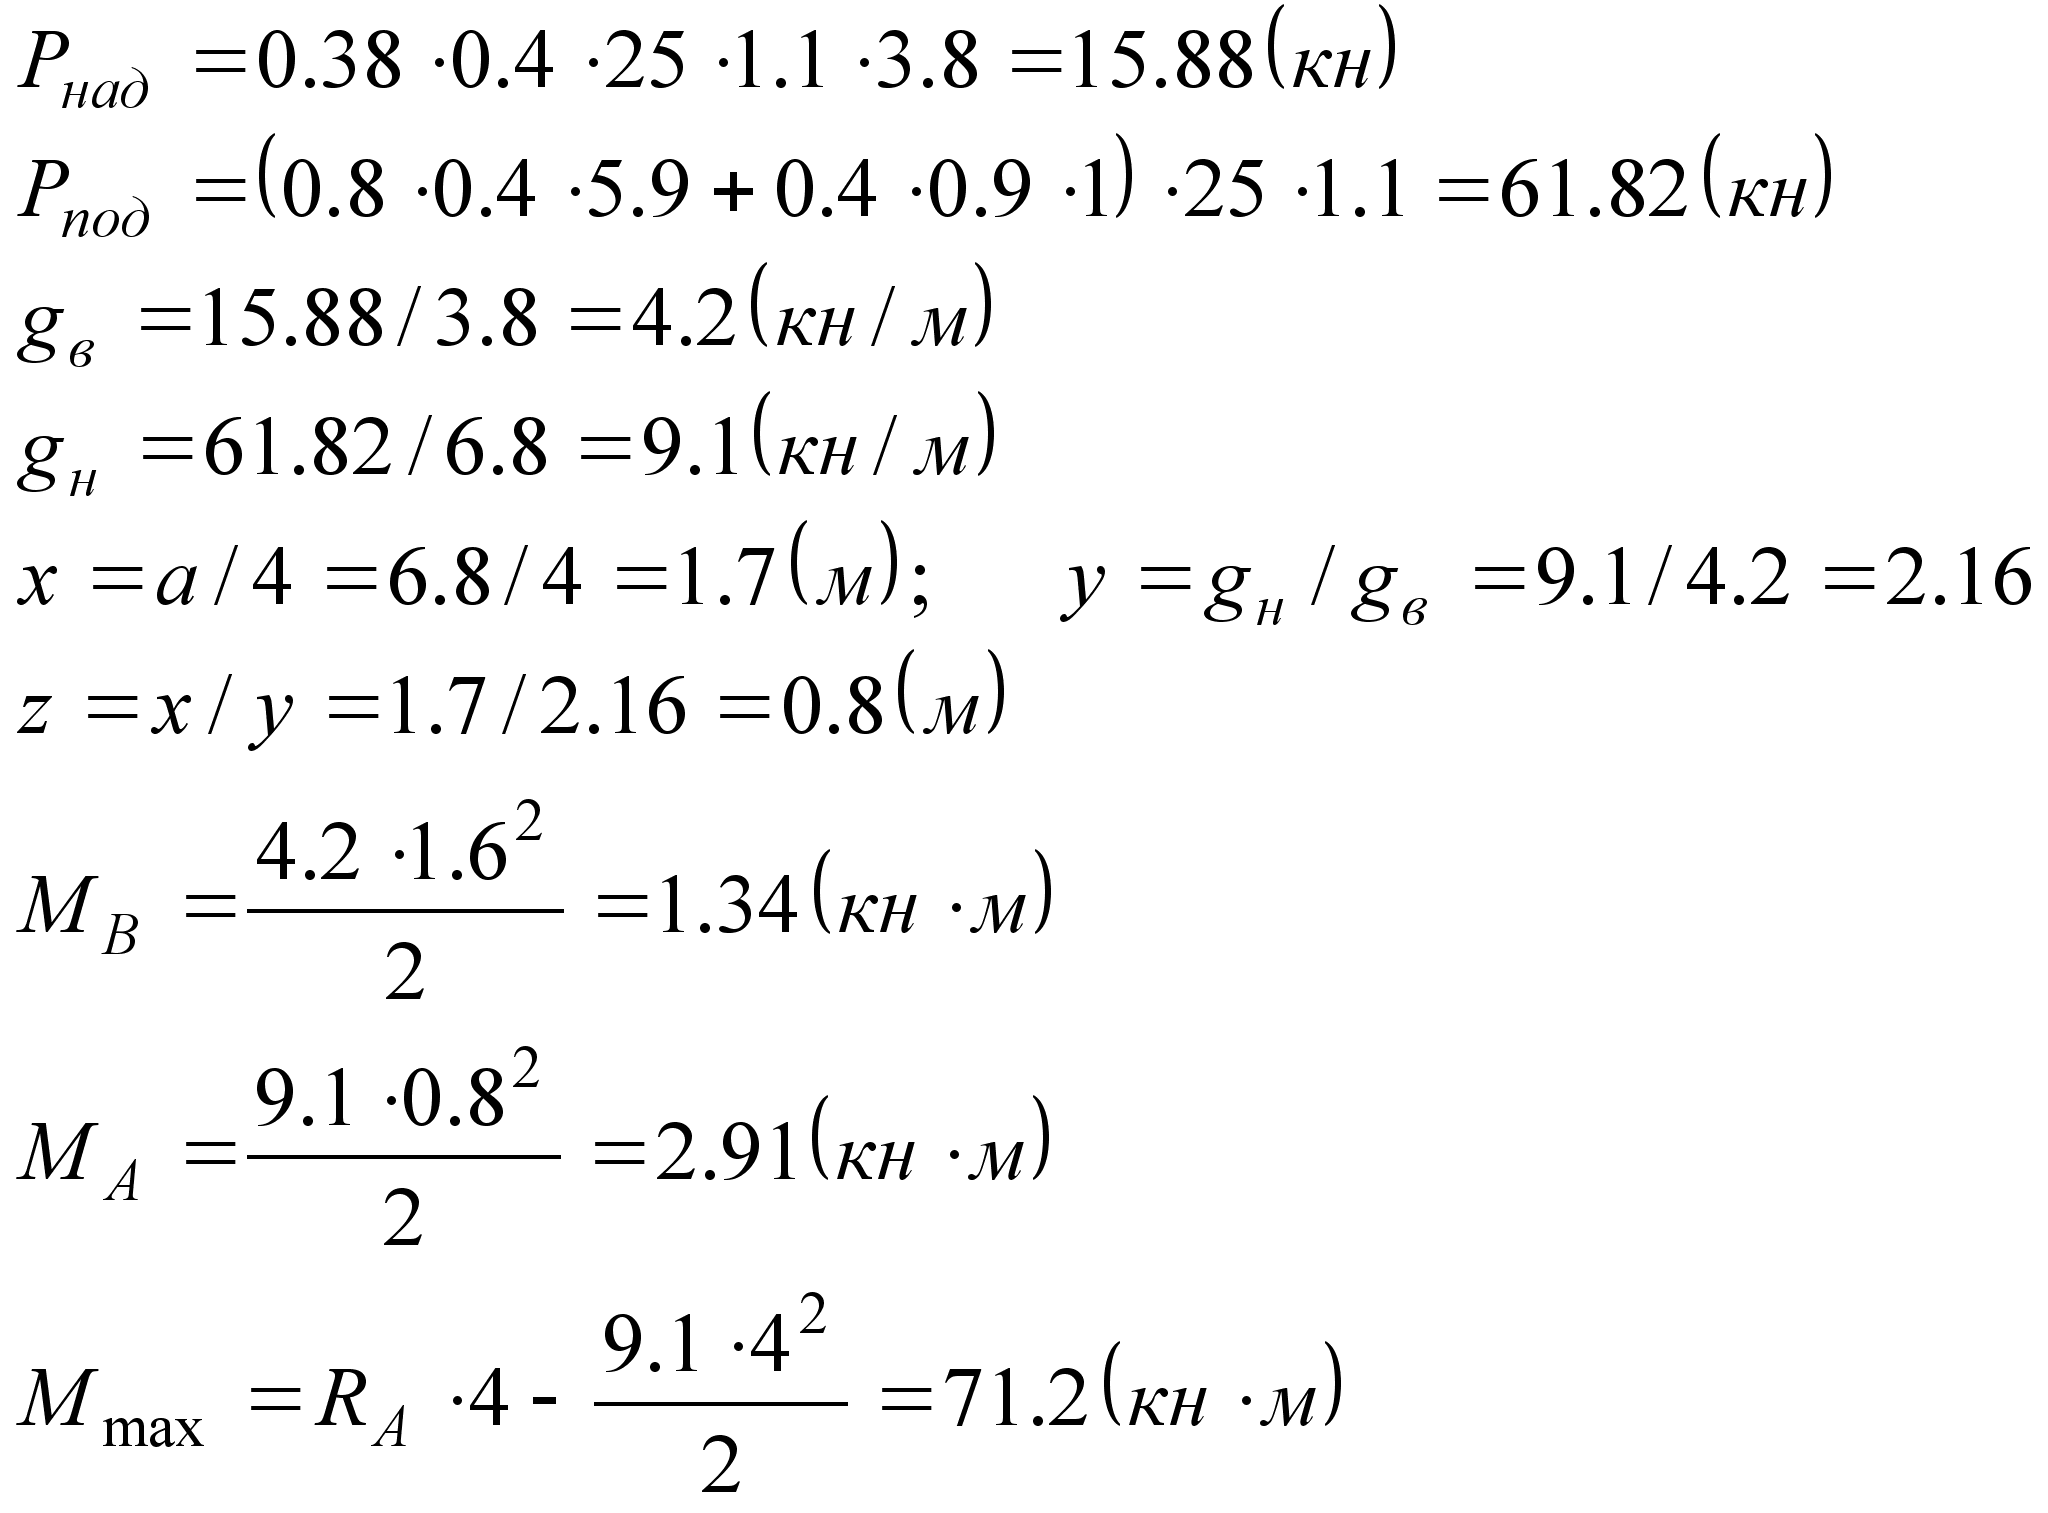 P_над = 0.38 · 0.4 · 25 · 1.1 · 3.8 = 15.88 (кн)
P_под = (0.8 · 0.4 · 5.9 + 0.4 · 0.9 · 1) · 25 · 1.1 = 61.82 (кн)
g_в = 15.88 / 3.8 = 4.2 (кн / м)
g_н = 61.82 / 6.8 = 9.1 (кн / м)
x = a / 4 = 6.8 / 4 = 1.7 (м) ; y = g_н / g_в = 9.1 / 4.2 = 2.16
z = x / y = 1.7 / 2.16 = 0.8 (м)
M_B = \frac{4.2 · 1.6^2}{2} = 1.34 (кн · м)
M_A = \frac{9.1 · 0.8^2}{2} = 2.91 (кн · м)
M_max = R_A · 4 - \frac{9.1 · 4^2}{2} = 71.2 (кн · м)